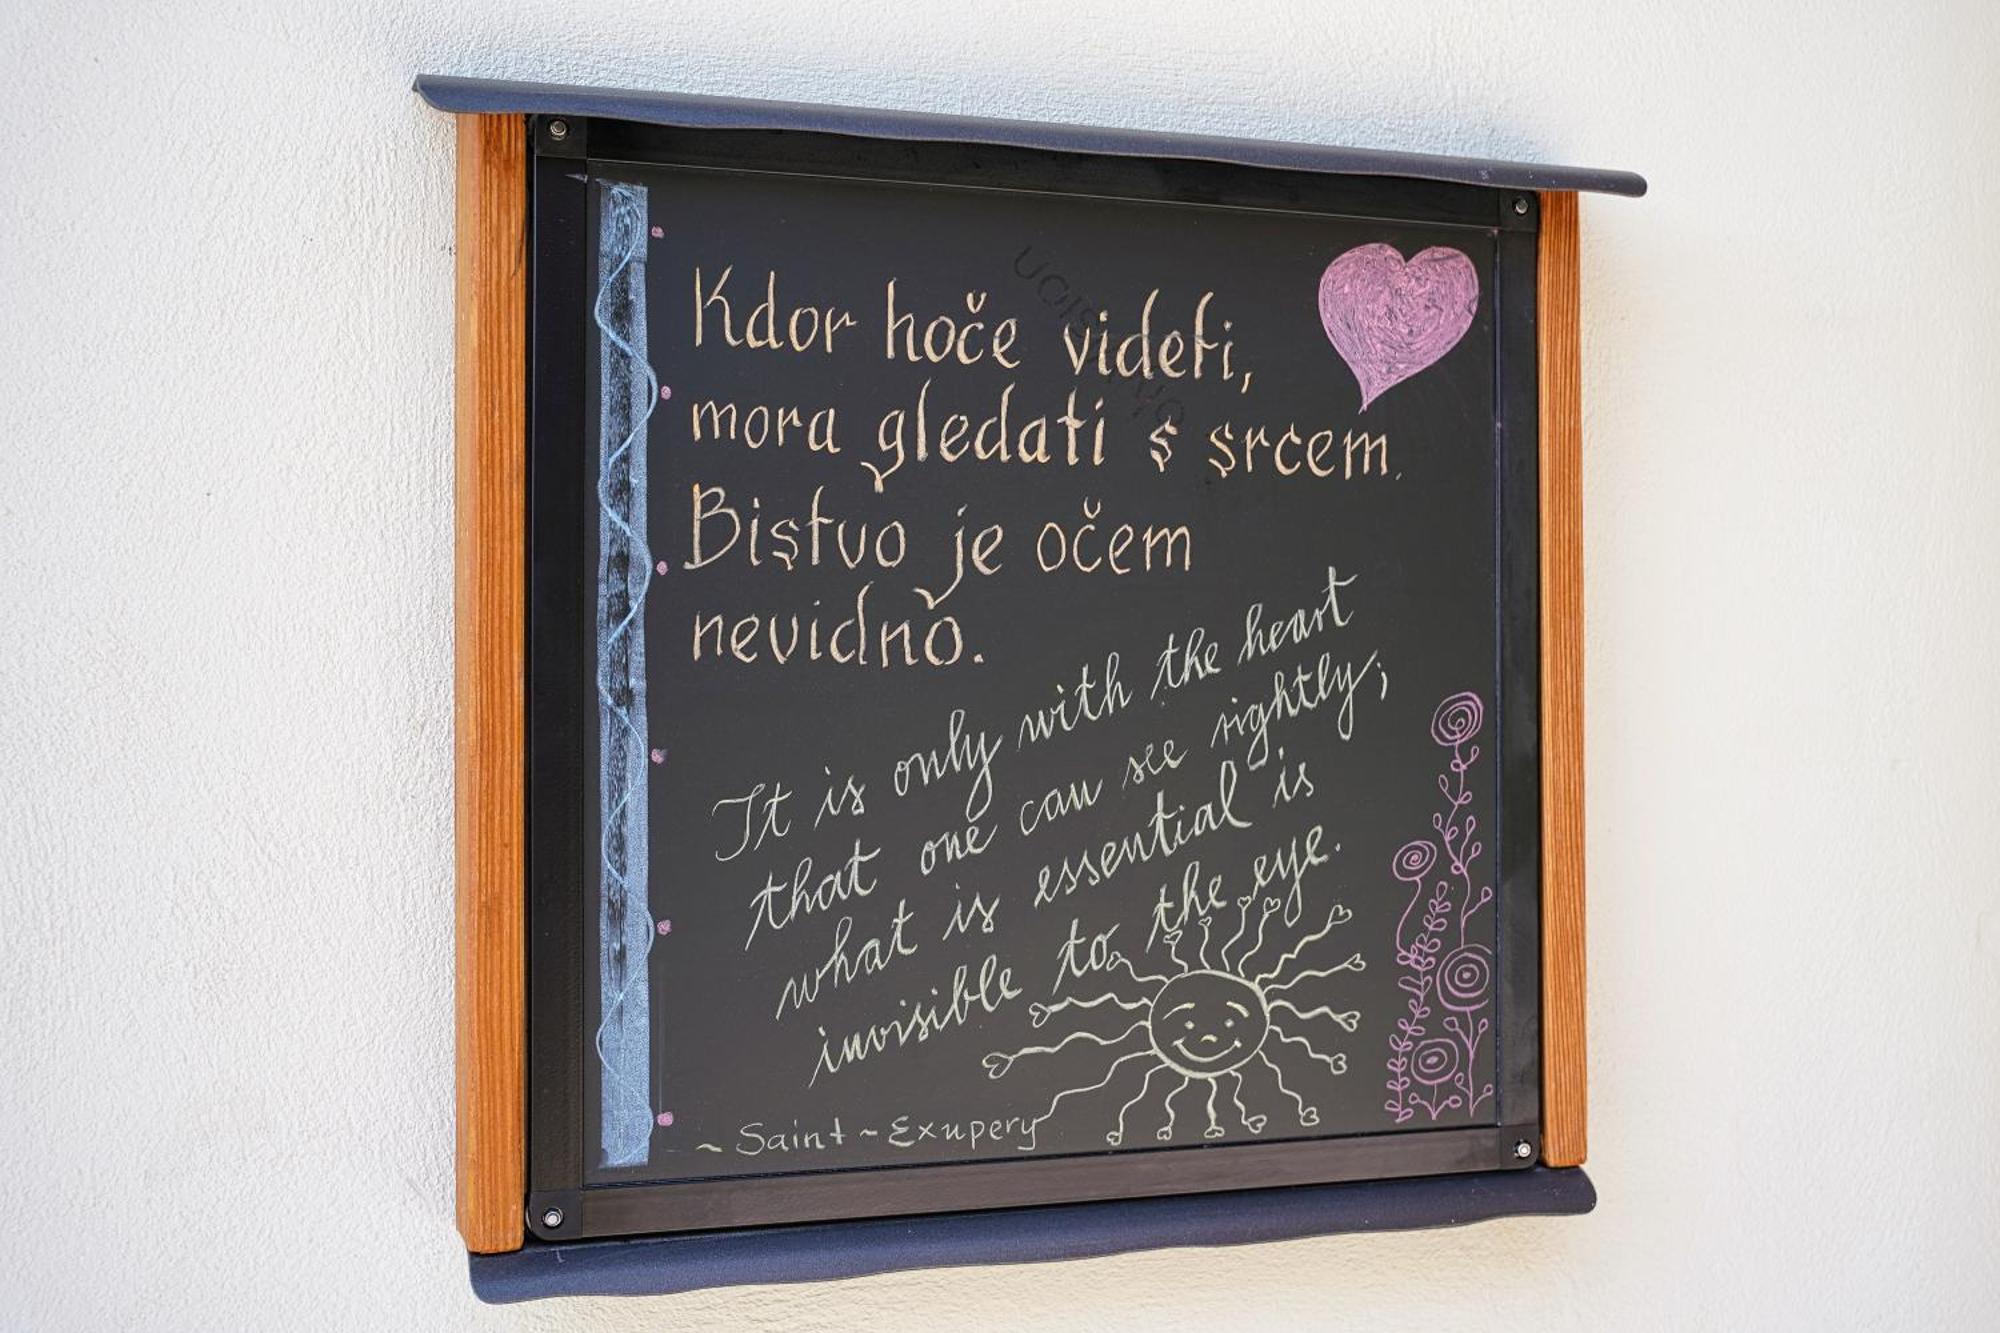 Kdor hoče videti,
mora gledati s srcem.
Bistvo je očem
nevidno.
It is only with the heart
that one can see rightly;
what is essential is
invisible to the eye.
~ Saint ~ Exupery